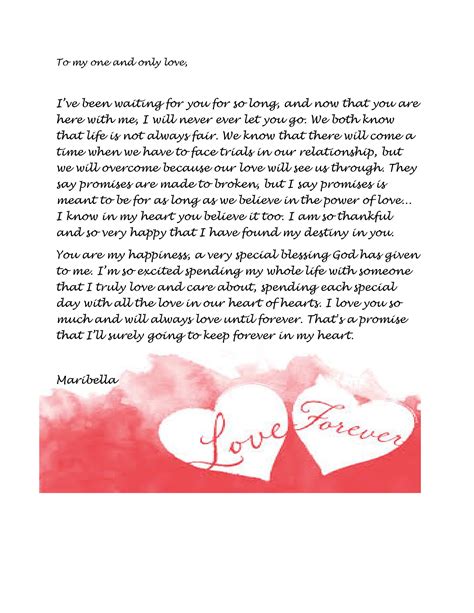 To my one and only love,
I've been waiting for you for so long, and now that you are
here with me, I will never ever let you go. We both know
that life is not always fair. We know that there will come a
time when we have to face trials in our relationship, but
we will overcome because our love will see us through. They
say promises are made to broken, but I say promises is
meant to be for as long as we believe in the power of love...
I know in my heart you believe it too. I am so thankful
and so very happy that I have found my destiny in you.
You are my happiness, a very special blessing God has given
to me. I'm so excited spending my whole life with someone
that I truly love and care about, spending each special
day with all the love in our heart of hearts. I love you so
much and will always love until forever. That's a promise
that I'll surely going to keep forever in my heart.
Maribella
Love Forever